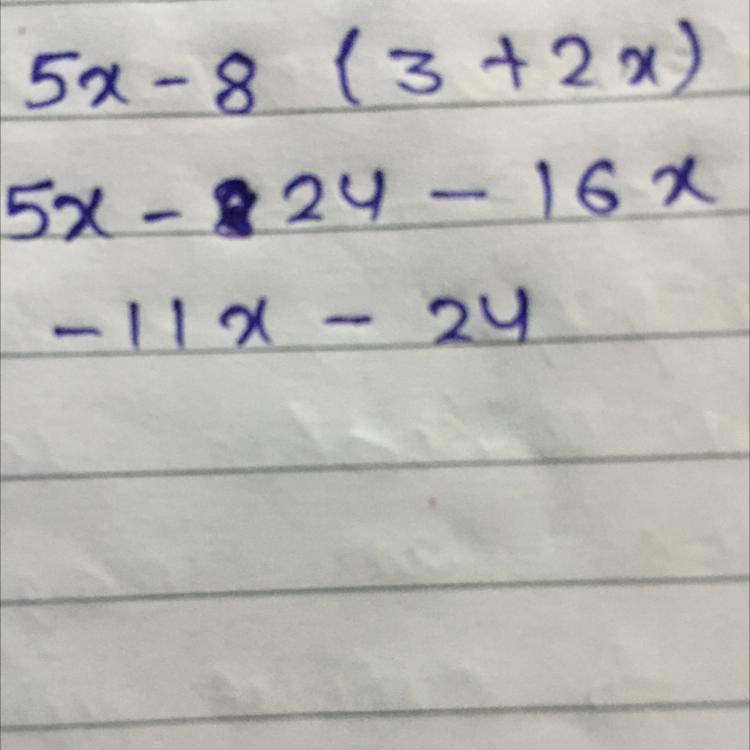 5x - 8 (3 + 2x)
5x - 24 - 16x
-11x - 24